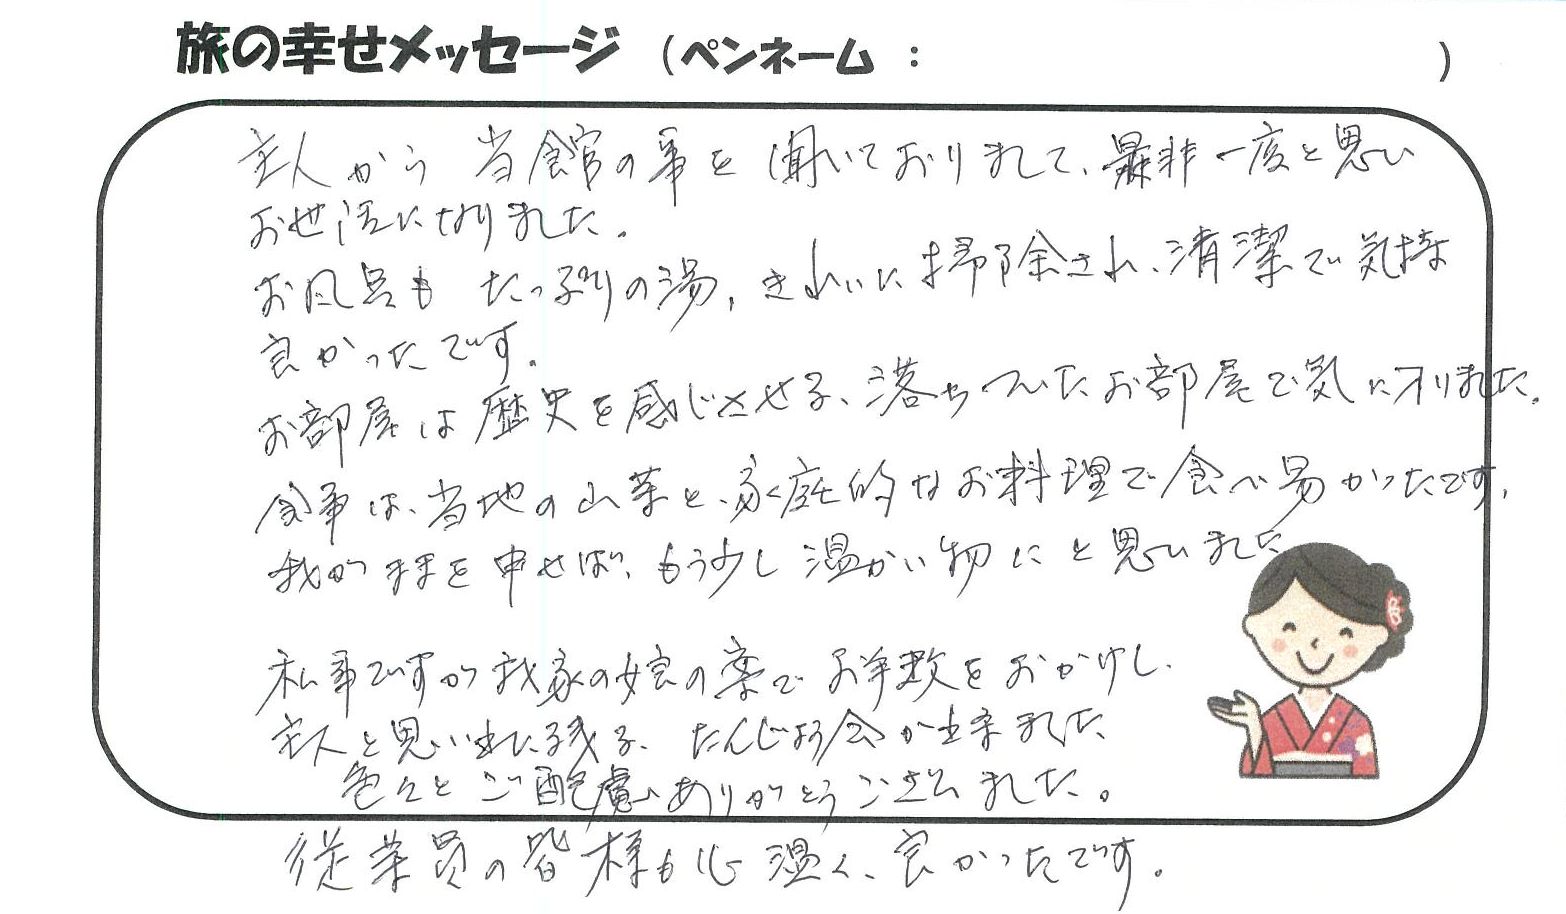 旅の幸せメッセージ (ペンネーム : )
主人から 当館の事を 聞いておりまして、是非一度と思い
お世話になりました。
お風呂も たっぷりの湯、きれいに掃除され、清潔で気持
良かったです。
お部屋は歴史を感じさせる、落ちついたお部屋で気に入りました。
食事は、当地の山菜と、家庭的なお料理で食べ易かったです。
我がままを申せば、もう少し温かい物にと思いました
私事ですが我家の娘の案でお手数をおかけし、
主人と思い出に残る、たんじょう会が出来ました
色々とご配慮ありがとうございました。
従業員の皆様も心温く、良かったです。